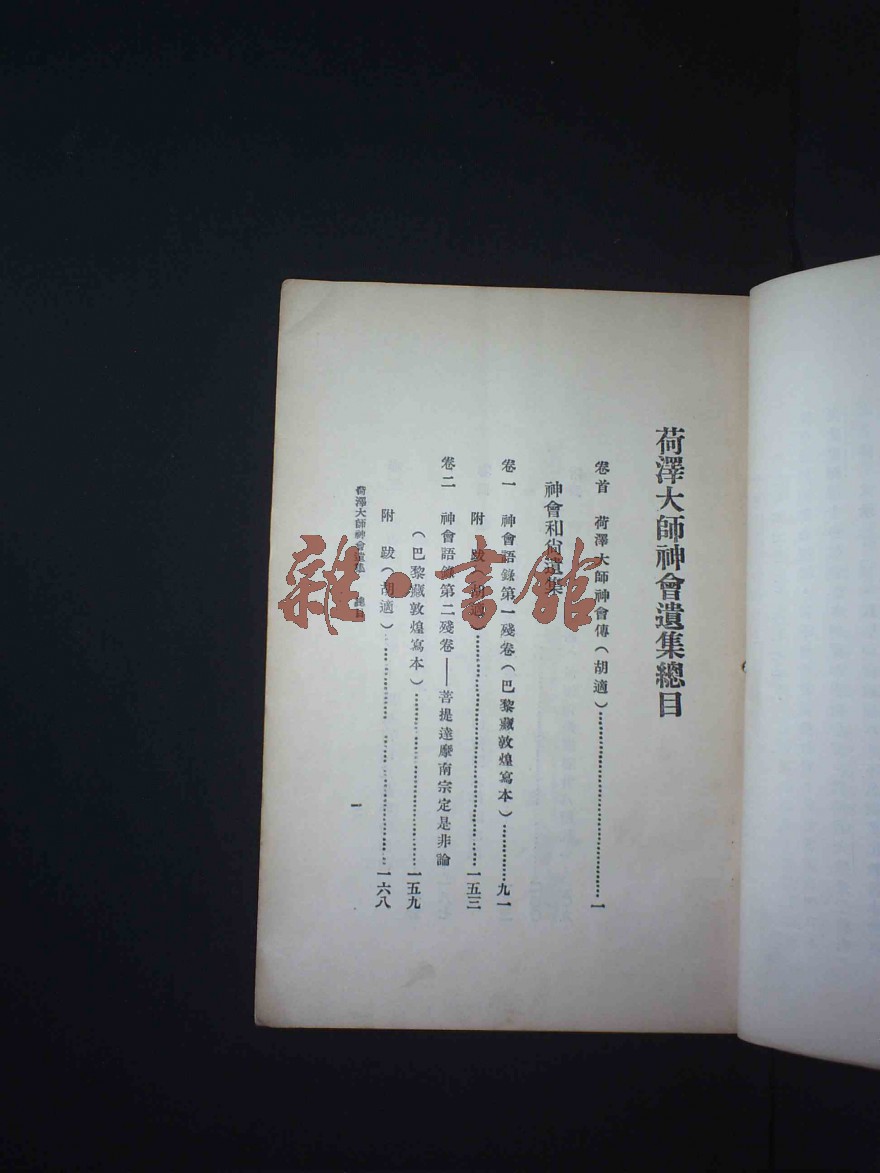 荷澤大師神會遺集總目
卷首 荷澤大師神會傳(胡適)…………一
神會和尙遺集
卷一 神會語錄第一殘卷(巴黎藏敦煌寫本)…………九一
附 跋(胡適)…………一五三
卷二 神會語錄第二殘卷——菩提達摩南宗定是非論
(巴黎藏敦煌寫本)…………一五九
附 跋(胡適)…………一六八
荷澤大師神會遺集 總目
一
雜·書館